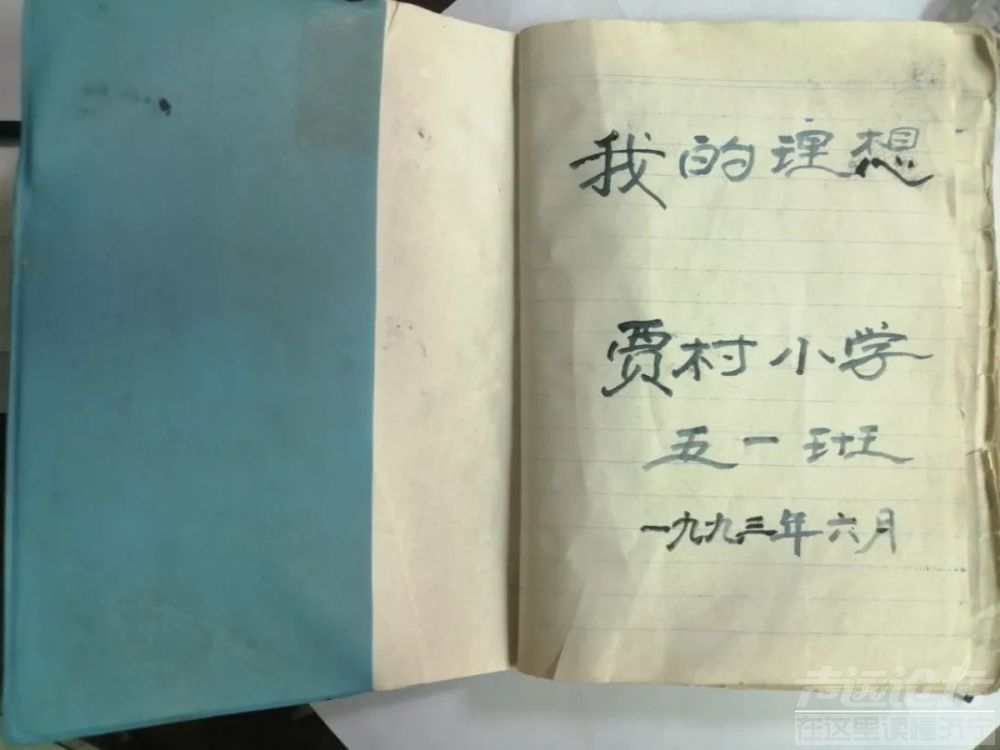 我的理想
贾村小学
五一班
一九九三年六月
声远论坛
在这里读懂济宁